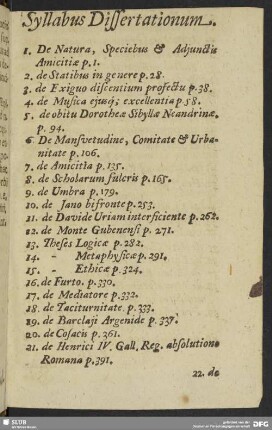 Syllabus Dissertationum.
1. De Natura, Speciebus & Adjunctis
Amicitiæ p.1.
2. de Statibus in genere p.28.
3. de Exiguo discentium profectu p.38.
4. de Musica ejusq; excellentia p.58.
5. de obitu Dorotheæ Sibyllæ Neandrinæ.
p. 94.
6. De Mansvetudine, Comitate & Urba-
nitate p.106.
7. de Amicitia p.135.
8. de Scholarum fulcris p.165.
9. de Umbra p.179.
10. de Jano bifronte p.253.
11. de Davide Uriam interficiente p.262.
12. de Monte Gubenensi p. 271.
13. Theses Logicæ p.282.
14. - Metaphysicæ p.291.
15. - Ethicæ p.324.
16. de Furto. p.330.
17. de Mediatore p.332.
18. de Taciturnitate. p.333.
19. de Barclaji Argenide p.337.
20. de Cosacis p.361.
21. de Henrici IV. Gall. Reg. absolutione
Romana p.391.
22. de
SLUB
DFG